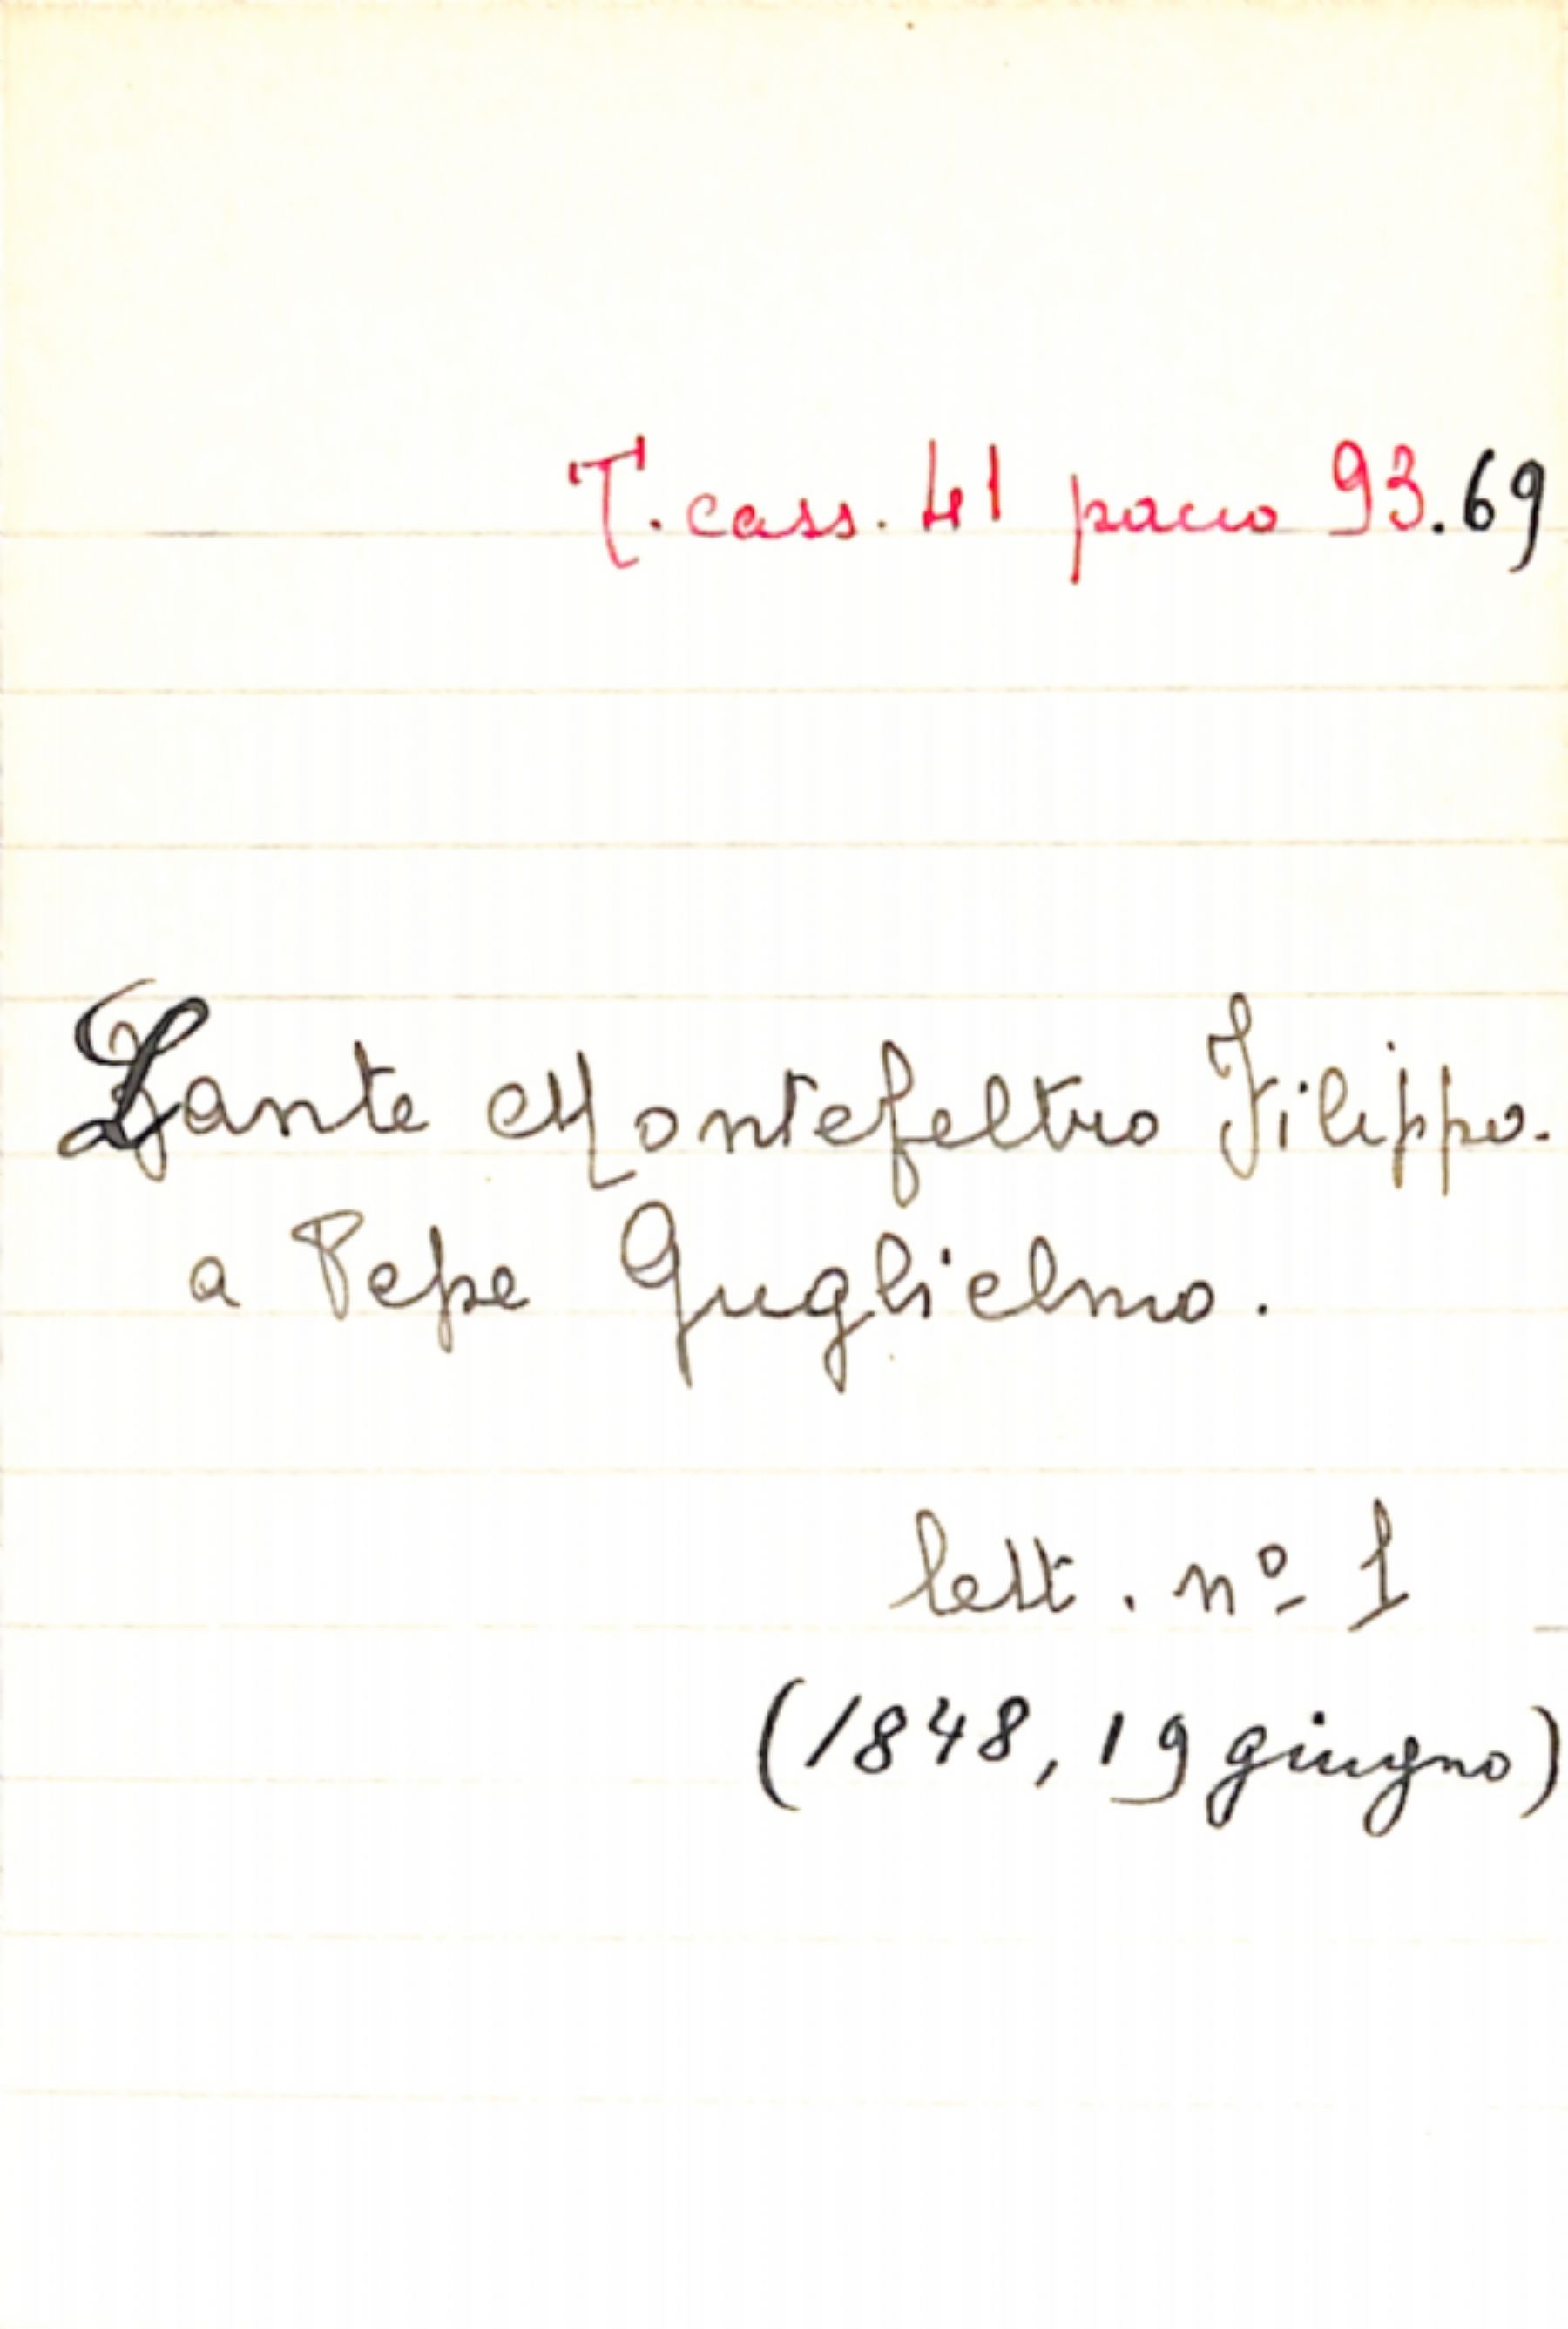 T. cass. 41 pacco 93.69
Lante Montefeltro Filippo.
a Pepe Guglielmo.
lett. nº 1
(1848, 19 giugno)